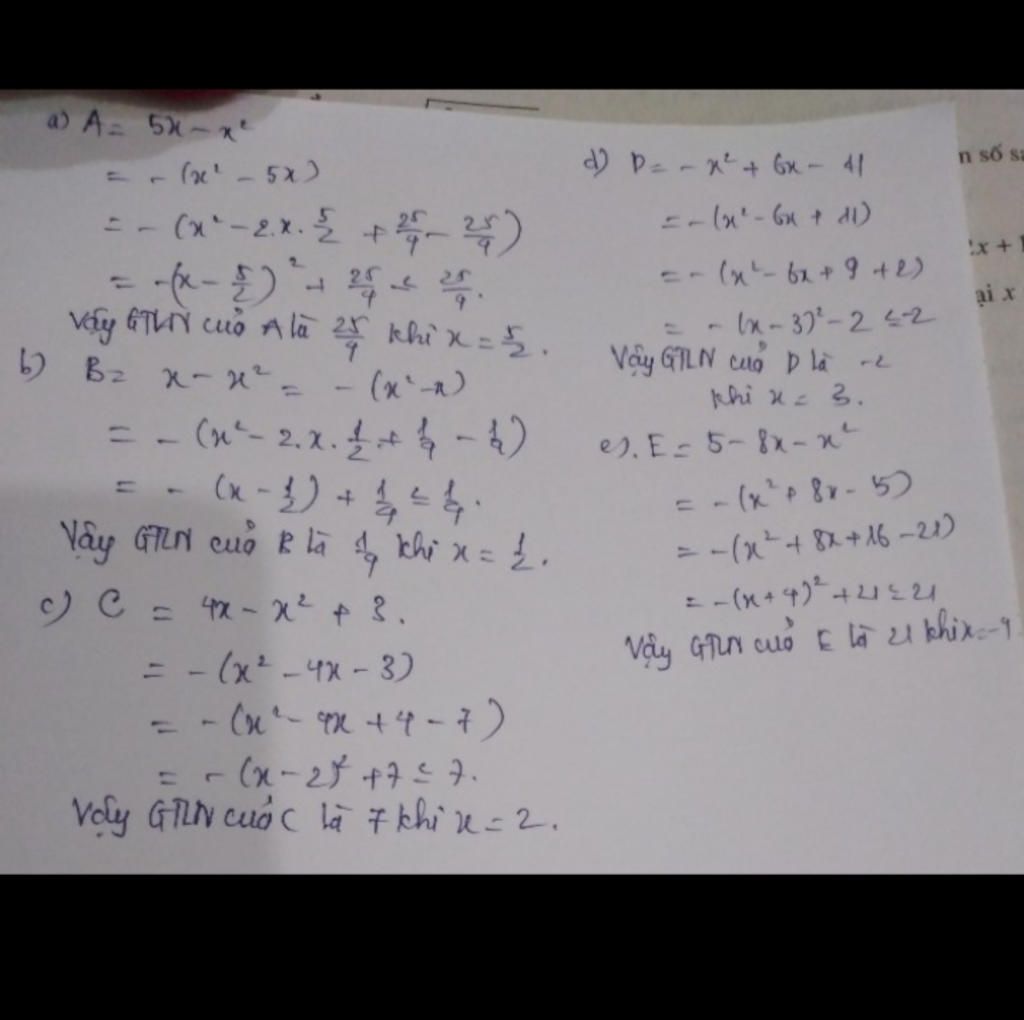 a) A = 5x - x²
= - (x² - 5x)
= - (x² - 2.x. 5/2 + 25/4 - 25/4)
= -(x - 5/2)² + 25/4 ≤ 25/4.
Vậy GTLN của A là 25/4 khi x = 5/2.
b) B = x - x² = - (x² - x)
= - (x² - 2.x. 1/2 + 1/4 - 1/4)
= - (x - 1/2) + 1/4 ≤ 1/4.
Vậy GTLN của B là 1/4 khi x = 1/2.
c) C = 4x - x² + 3.
= - (x² - 4x - 3)
= - (x² - 4x + 4 - 7)
= - (x - 2)² + 7 ≤ 7.
Vậy GTLN của C là 7 khi x = 2.
d) D = - x² + 6x - 11
= - (x² - 6x + 11)
= - (x² - 6x + 9 + 2)
= - (x - 3)² - 2 ≤ -2
Vậy GTLN của D là -2
khi x = 3.
e). E = 5 - 8x - x²
= - (x² + 8x - 5)
= - (x² + 8x + 16 - 21)
= - (x + 4)² + 21 ≤ 21
Vậy GTLN của E là 21 khi x = -4
n số sa
x + 1
ại x